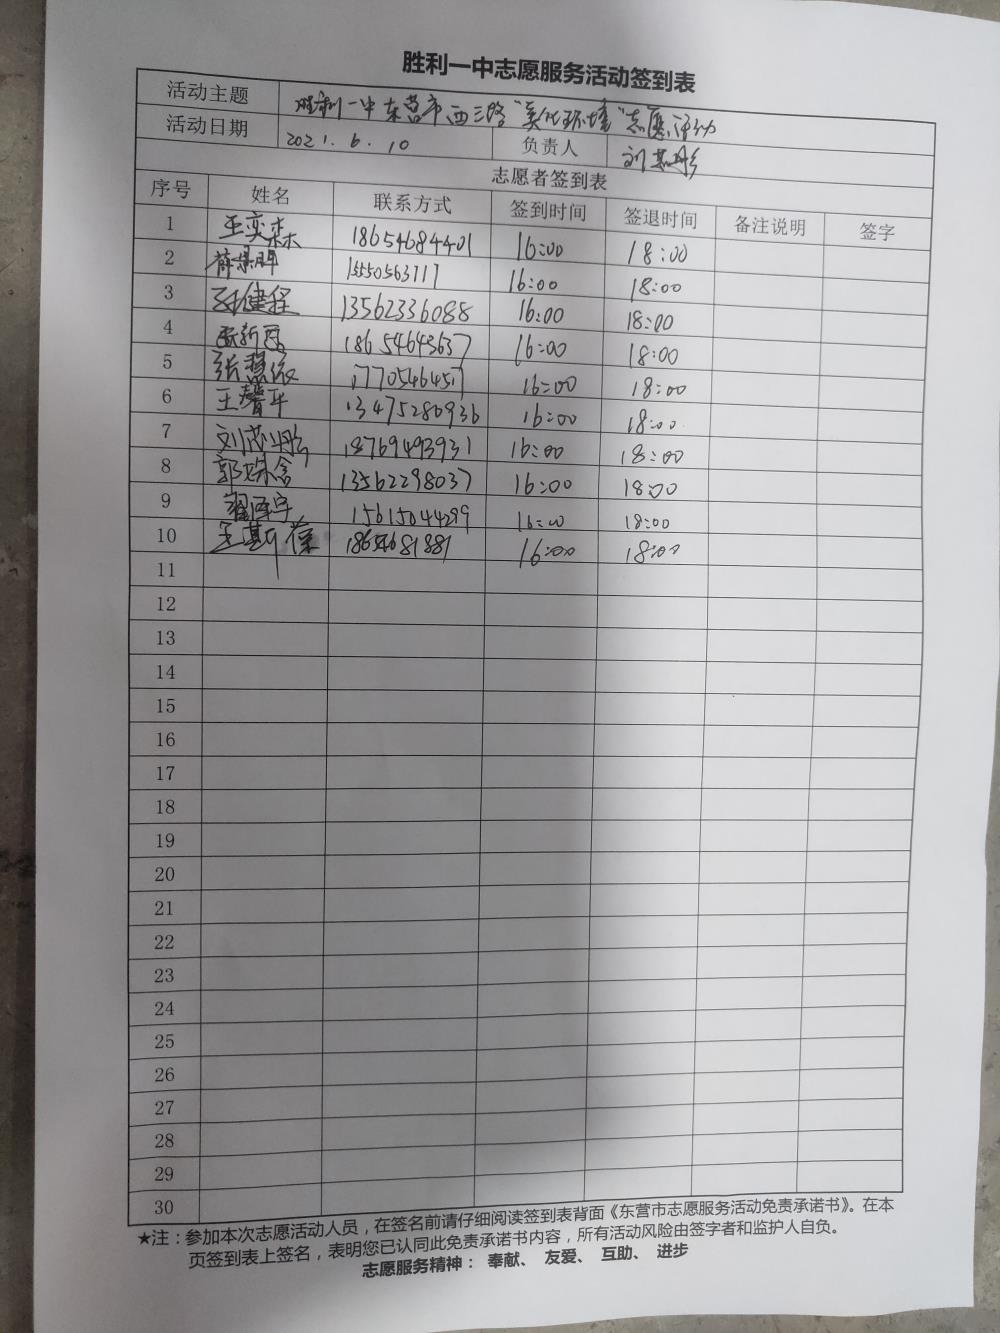 胜利一中志愿服务活动签到表
活动主题 胜利一中东营市西三路"美化环境"志愿活动
活动日期 2021.6.10 负责人 刘
志愿者签到表
序号 姓名 联系方式 签到时间 签退时间 备注说明 签字
1 王奕森 18654684401 16:00 18:00
2 15550563717 16:00 18:00
3 孙健程 13562336088 16:00 18:00
4 18654643637 16:00 18:00
5 张慧依 17770546451 16:00 18:00
6 王馨平 13475280936 16:00 18:00
7 刘 18769493931 16:00 18:00
8 郭姝含 13562298037 16:00 18:00
9 翟泽宇 15615044299 16:00 18:00
10 王斯葆 18654681881 16:00 18:00
11
12
13
14
15
16
17
18
19
20
21
22
23
24
25
26
27
28
29
30
★注：参加本次志愿活动人员，在签名前请仔细阅读签到表背面《东营市志愿服务活动免责承诺书》。在本
页签到表上签名，表明您已认同此免责承诺书内容，所有活动风险由签字者和监护人自负。
志愿服务精神： 奉献、 友爱、 互助、 进步